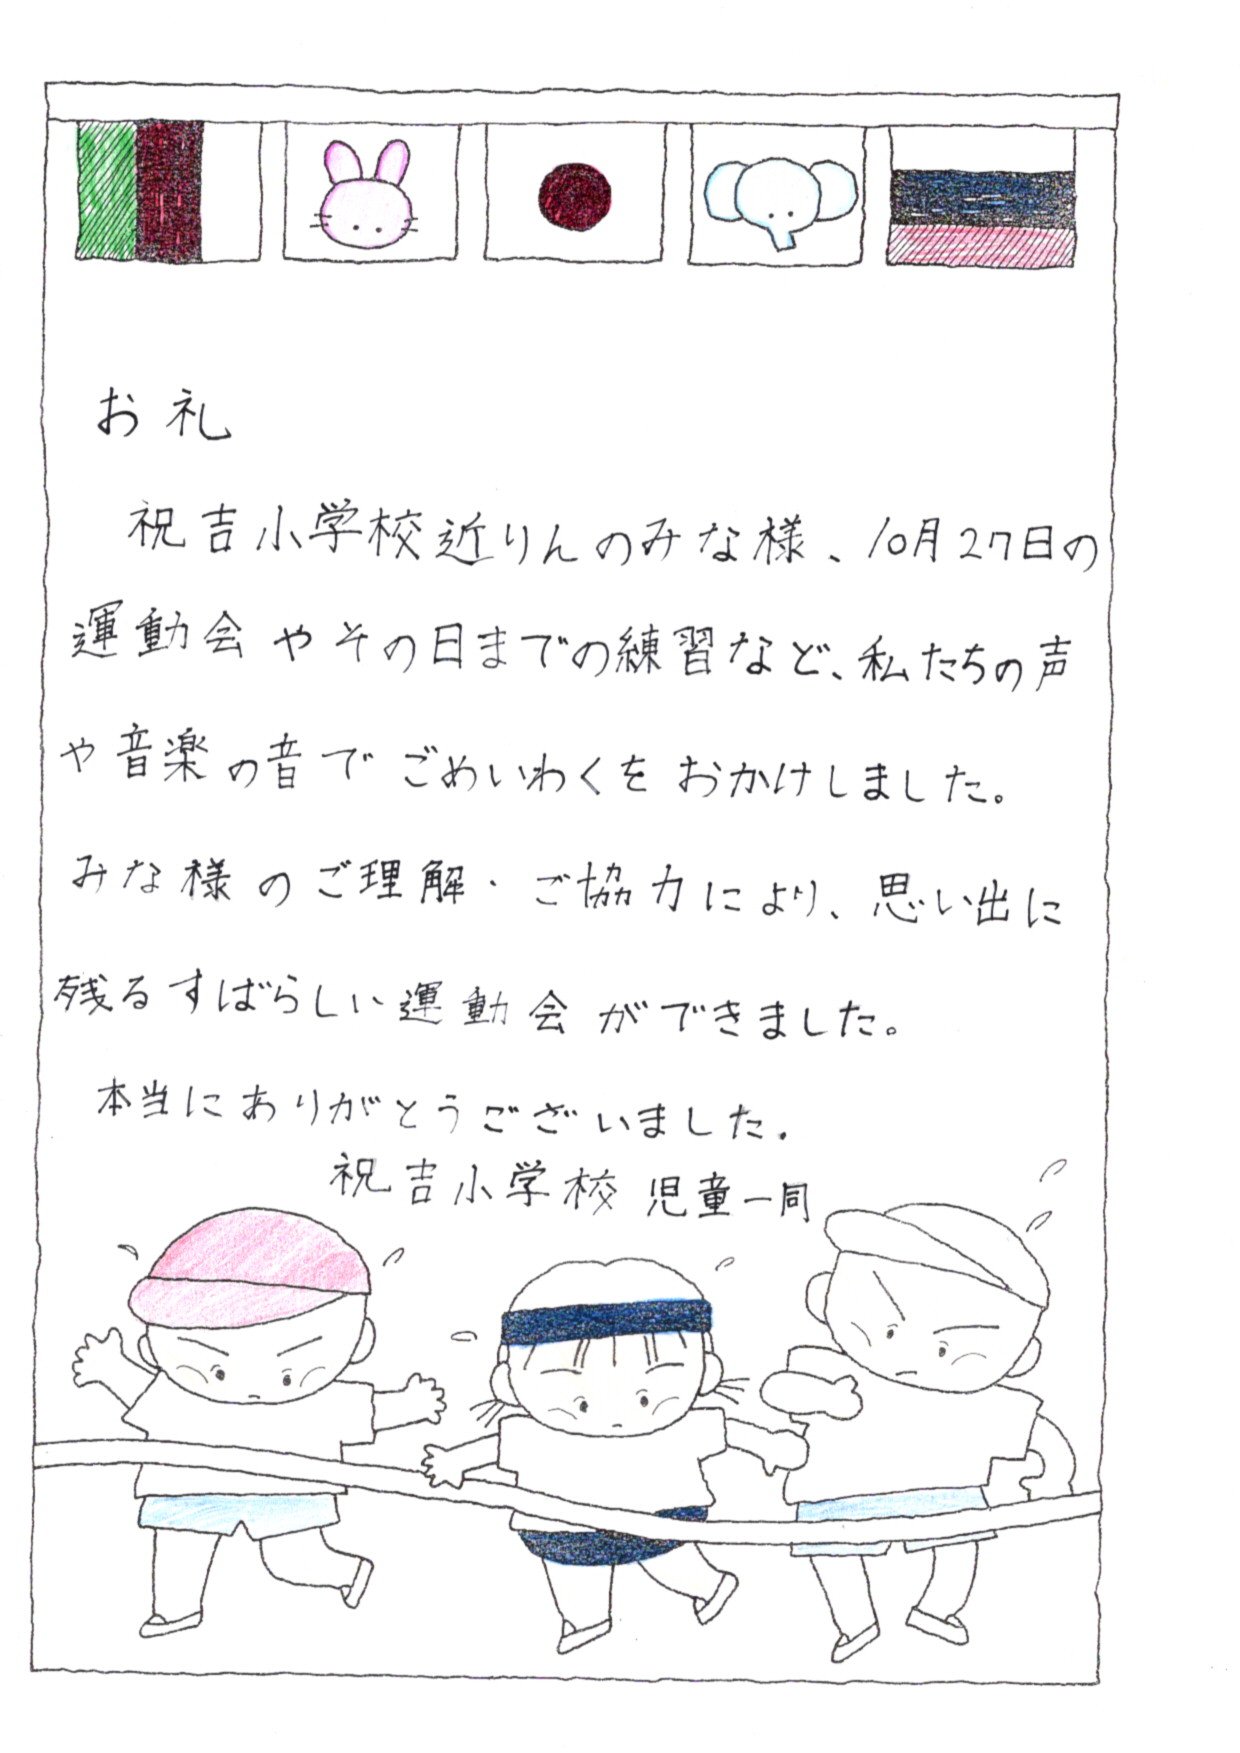 お礼
祝吉小学校近りんのみな様、10月27日の
運動会やその日までの練習など、私たちの声
や音楽の音でごめいわくをおかけしました。
みな様のご理解・ご協力により、思い出に
残るすばらしい運動会ができました。
本当にありがとうございました.
祝吉小学校 児童一同